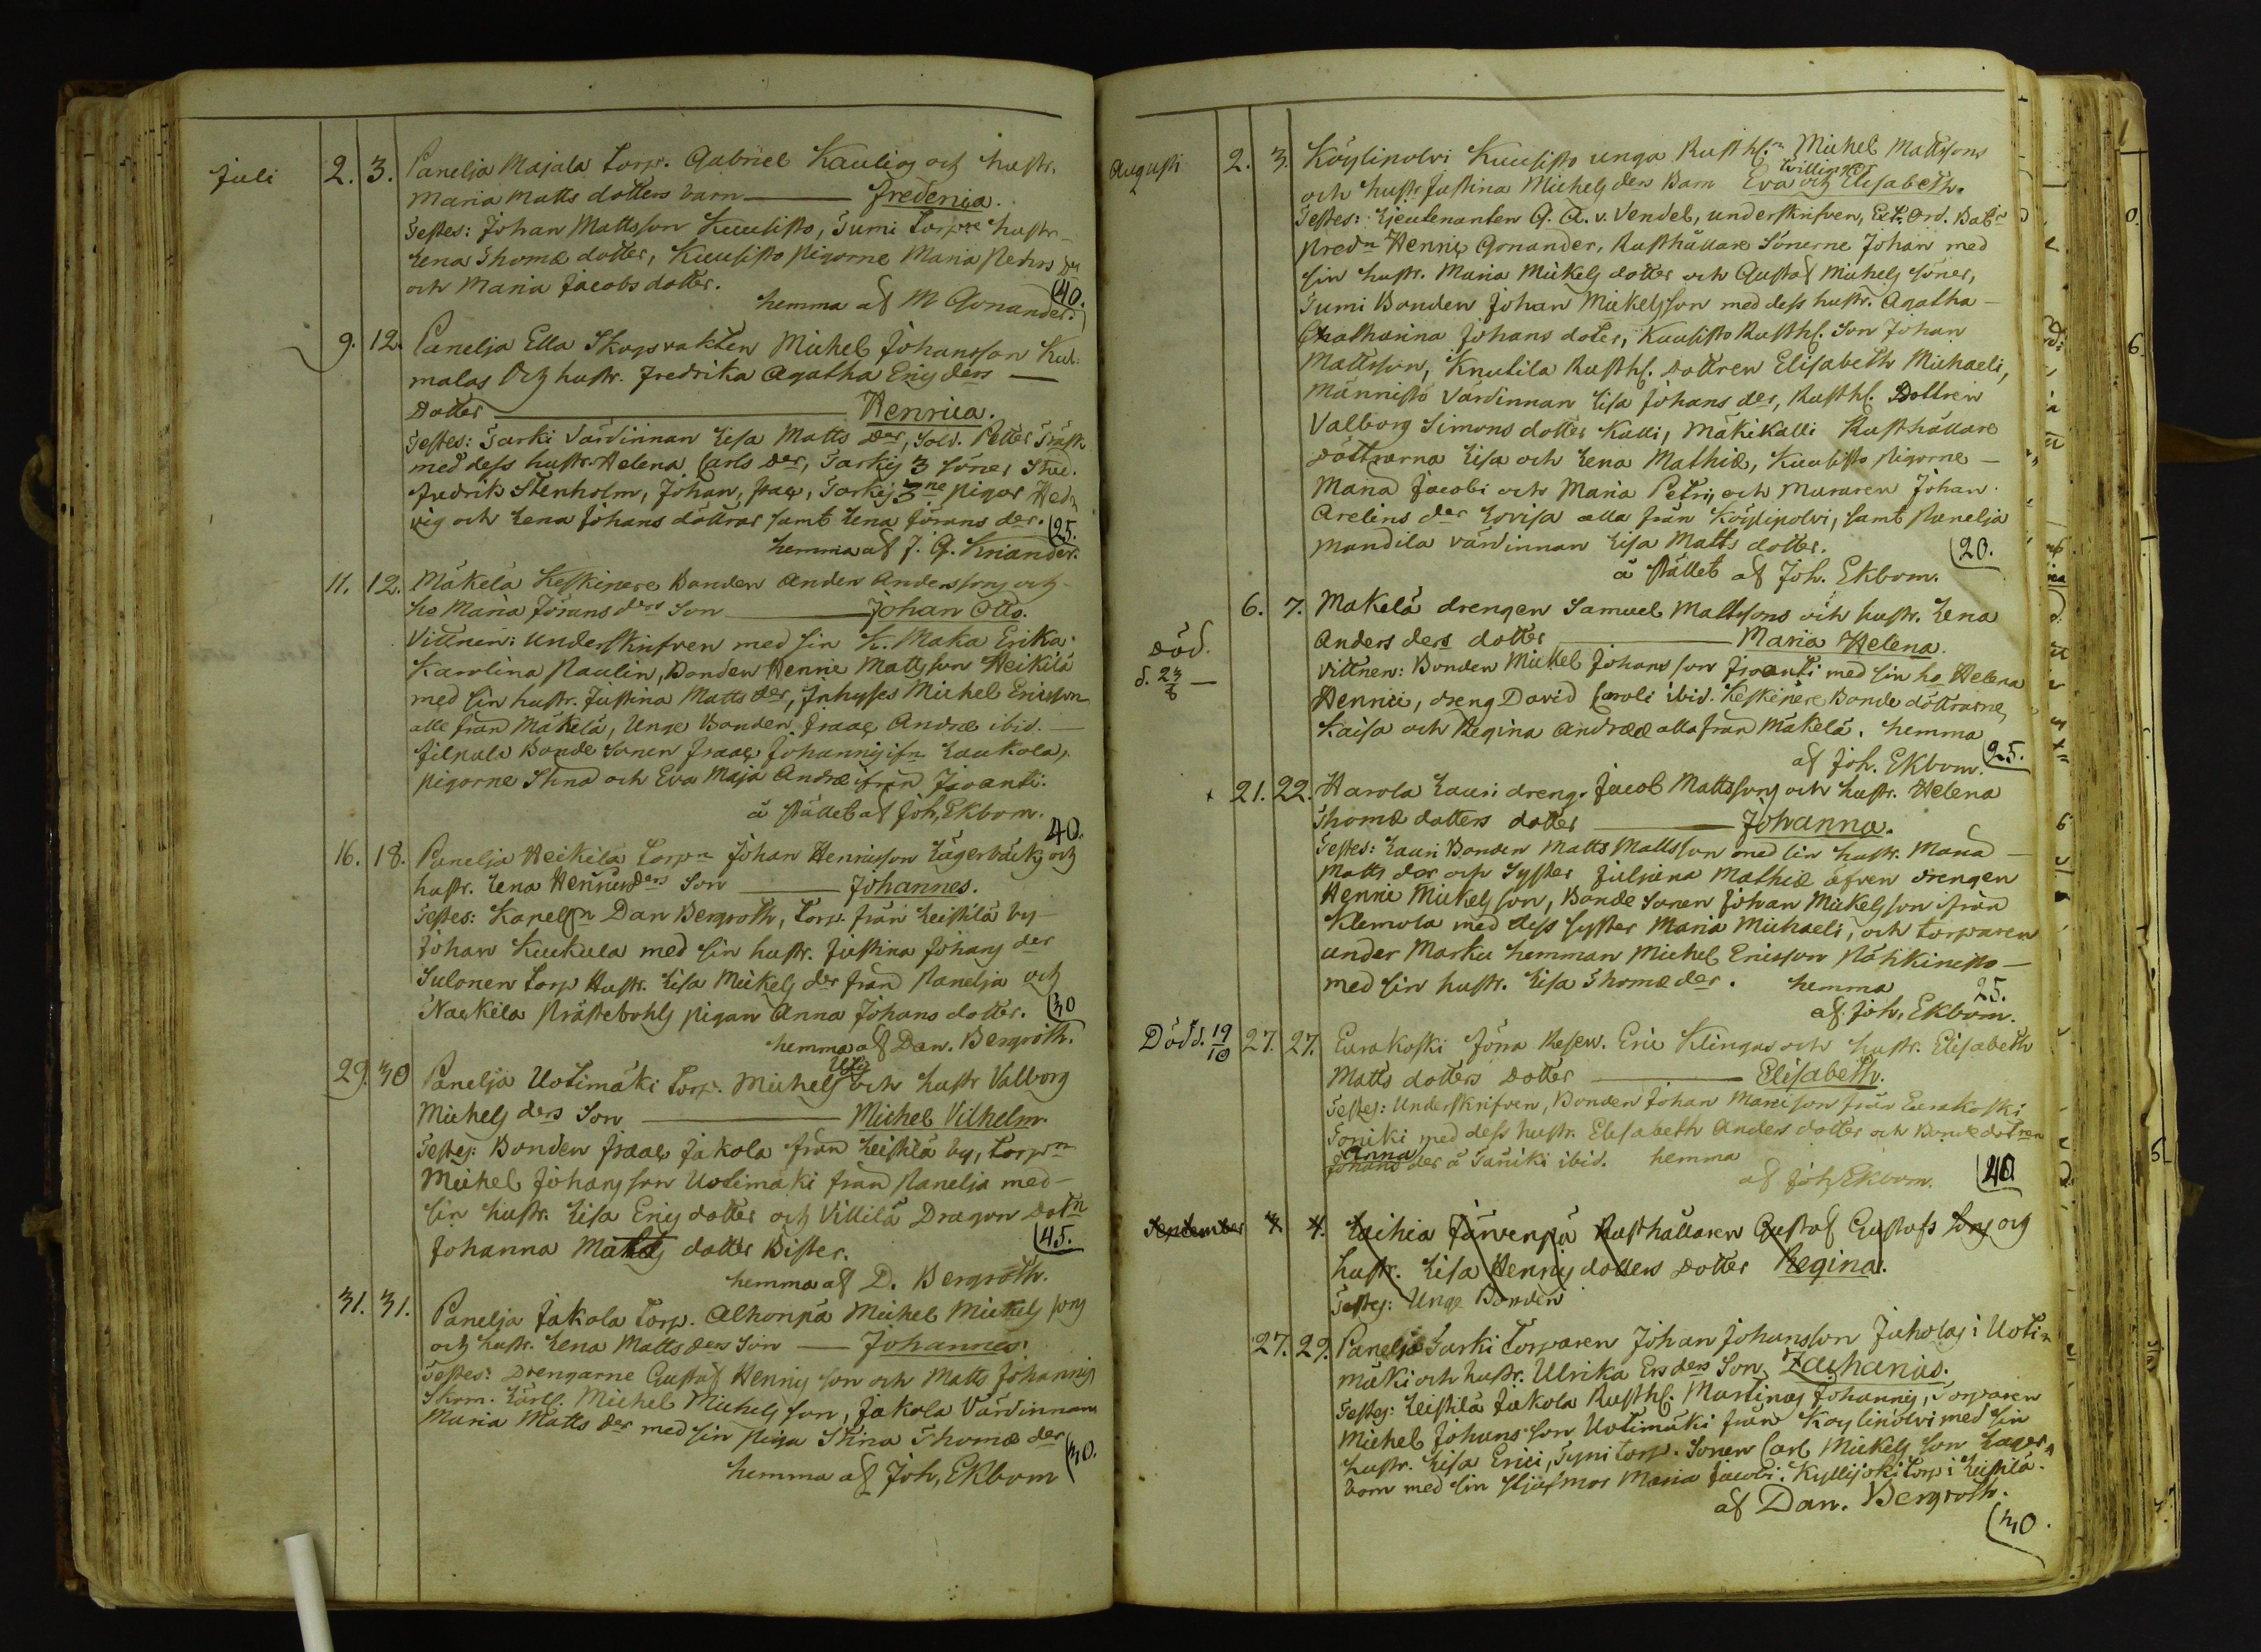 Juli 2. 3. Panelja Majala Torp. Gabriel Kaulig och hustr.
Maria Matts dotters barn — Fredrica.
Testes: Johan Mattsson Kuusisto, Tumi Torp:re hustr.
Lena Thomæ dotter, Kuusisto pigorne Maria Peters dr
och Maria Jacobs dotter. (40.
hemma af M Gonander.
9. 12. Panelja Ella Skogvakten Michel Johansson Kul:
malas och hustr. Fredrika Agatha Erics ders —
Dotter — Henrica.
Testes: Tarki värdinnan Lisa Matts der, Sold. Petter Träsk
med dess hustr. Helena Carls der, Tarkis 3 söner, Stud.
Fredrik Stenholm, Johan, Isac, Tarkis 3ne pigor Hed
vig och Lena Johans döttrar samt Lena Jörans der. (25.
hemma af J. G. Kriander.
11. 12. Mäkelä Keskinere Bonden Anders Anderssons och
ho Maria Jörans ders Son — Johan Otto.
Vittnen: Underskrifven med sin K. Maka Erika
Karolina Paulin, Bonden Henric Mattsson Heikilä
med sin hustr. Justina Matts der, Inhyses Michel Ericsson
alle från Mäkelä, Unge Bonden Isaac Andræ ibid. —
Filpula Bonde Sonen Isaac Johannis ifrn Laukola,
pigorne Stina och Eva Maja Andræ ifrån Isoanti.
å stället af Joh, Ekbom.
40.
16. 18. Panelja Heikilä Torpn Johan Henricsson Lägerbäcks och
hustr. Lena Henrics ders Son — Johannes.
Testes: Kapelln Dan Bergroth, Torp. från Leistilä by
Johan Kuukula med sin hustr. Justina Johans der
Sulonen Torp Hustr. Lisa Mickels der från Panelja och
Naskila Prästebohls pigan Anna Johans dotter. (30
hemma af Dan. Bergroth.
29. 30 Panelja Uotimäki Torp. Michels och hustr Valborg
Michels ders Son — Michel Vilhelm.
Testes: Bonden Isaac Jakola från Leistilä by, Torprn
Michel Johansson Uotimäki från Panelja med
sin hustr. Lisa Erics dotter och Villilä Dragon Dotn
Johanna Matts dotter Bister. (45.
hemma af D. Bergroth.
31. 31. Panelja Jakola Torp. Alhonpä Michel Michels sons
och hustr. Lena Matts ders Son — Johannes.
Testes: Drengarne Gustaf Henrics son och Matts Johannis
Skom. Lärl. Michel Michels son, Jakola Värdinnan
Maria Matts der med sin piga Stina Thomæ der (30.
hemma af Joh, Ekbom
Augusti 2. 3. Köylipolvi Kuusisto unga Rusthln Michel Mattsons
och hustr Justina Michels ders Barn Tvillingar Eva och Elisabeth.
Testes: Lieutenanten G. A. v. Vendel, underskrifven, Ext. Ord. Batr
predn Henric Gonander, Rusthållare Sönerne Johan med
sin hustr. Maria Mickels dotter och Gustaf Michels söner,
Tumi Bonden Johan Mickelsson med dess hustr. Agatha —
Chatharina Johans doter, Kuusisto Rusthl. Son Johan
Mattsson, Knutila Rusthl. Dottren Elisabeth Michaeli,
Männistö värdinnan Lisa Johans der, Rusthl. Dottren
Valborg Simons dotter Kalli, Mäkikalli Rusthållare
döttrarna Lisa och Lena Mathiæ, Kuusisto pigorne —
Maria Jacobi och Maria Petri, och Muraren Johan
Arelins der Lovisa alla från Köylipolvi, samt Panelja
Mandila värdinnan Lisa Matts dotter. (20.
å stället af Joh. Ekbom.
6. 7. Makelä drengen Samuel Mattsons och hustr. Lena
död. Anders ders dotter — Maria Helena.
Vittnen: Bonden Michel Johansson Isoanti med sin ho Helena
Henrici, dreng David Caroli ibid. Keskinere Bonde döttrarne,
Kaisa och Regina Andreæ alla från Mäkelä. hemma
af Joh. Ekbom. (25.
+ 21. 22. Harola Lauri dreng. Jacob Mattssons och hustr. Helena
Thomæ dotters dotter — Johanna.
Testes: Lauri Bonden Matts Mattsson med sin hustr. Maria —
Matts der och Syster Juliana Mathiæ äfven drengen
Henric Mickelsson, Bonde Sonen Johan Mickelsson från
Klemola med dess syster Maria Michaeli, och torparen
under Marku hemman Michel Ericsson Pähkinisto —
med sin hustr. Lisa Thomæ der. hemma
25.
af Joh, Ekbom.
Död d. 19/10 27. 27. Eurakoski Jöna Reserv. Eric Klingas och hustr. Elisabeth
Matts dotters Dotter — Elisabeth.
Testes: Underskrifven, Bonden Johan Marcison från Eurakoski
Toniki med dess hustr. Elisabeth Anders dotter och Bondedotren
Anna Johans der å Taniki ibid. hemma
af Joh, Ekbom. (40
September 4. 4. Laihia Järvenpä Rusthållaren Gustaf Gustafs sons och
hustr. Lisa Henrics dotters Dotter Regina.
Testes: Unge Bonden
27. 29. Panelja Tarki Torparen Johan Johansson Jakolas i Uoti-
mäki och hustr. Ulrika Ers ders Son Zacharias.
Testes: Leistilä Jakola Rusthl. Martinus Johannis, Torparen
Michel Johansson Uotimäki från Köylipolvi med sin
hustr. Lisa Erici, Tyni Torp. Sonen Carl Mickels son Lager
bom med sin stjufmor Maria Jacobi. Kyllijoki Torp i Leistilä.
af Dan. Bergroth.
(30.